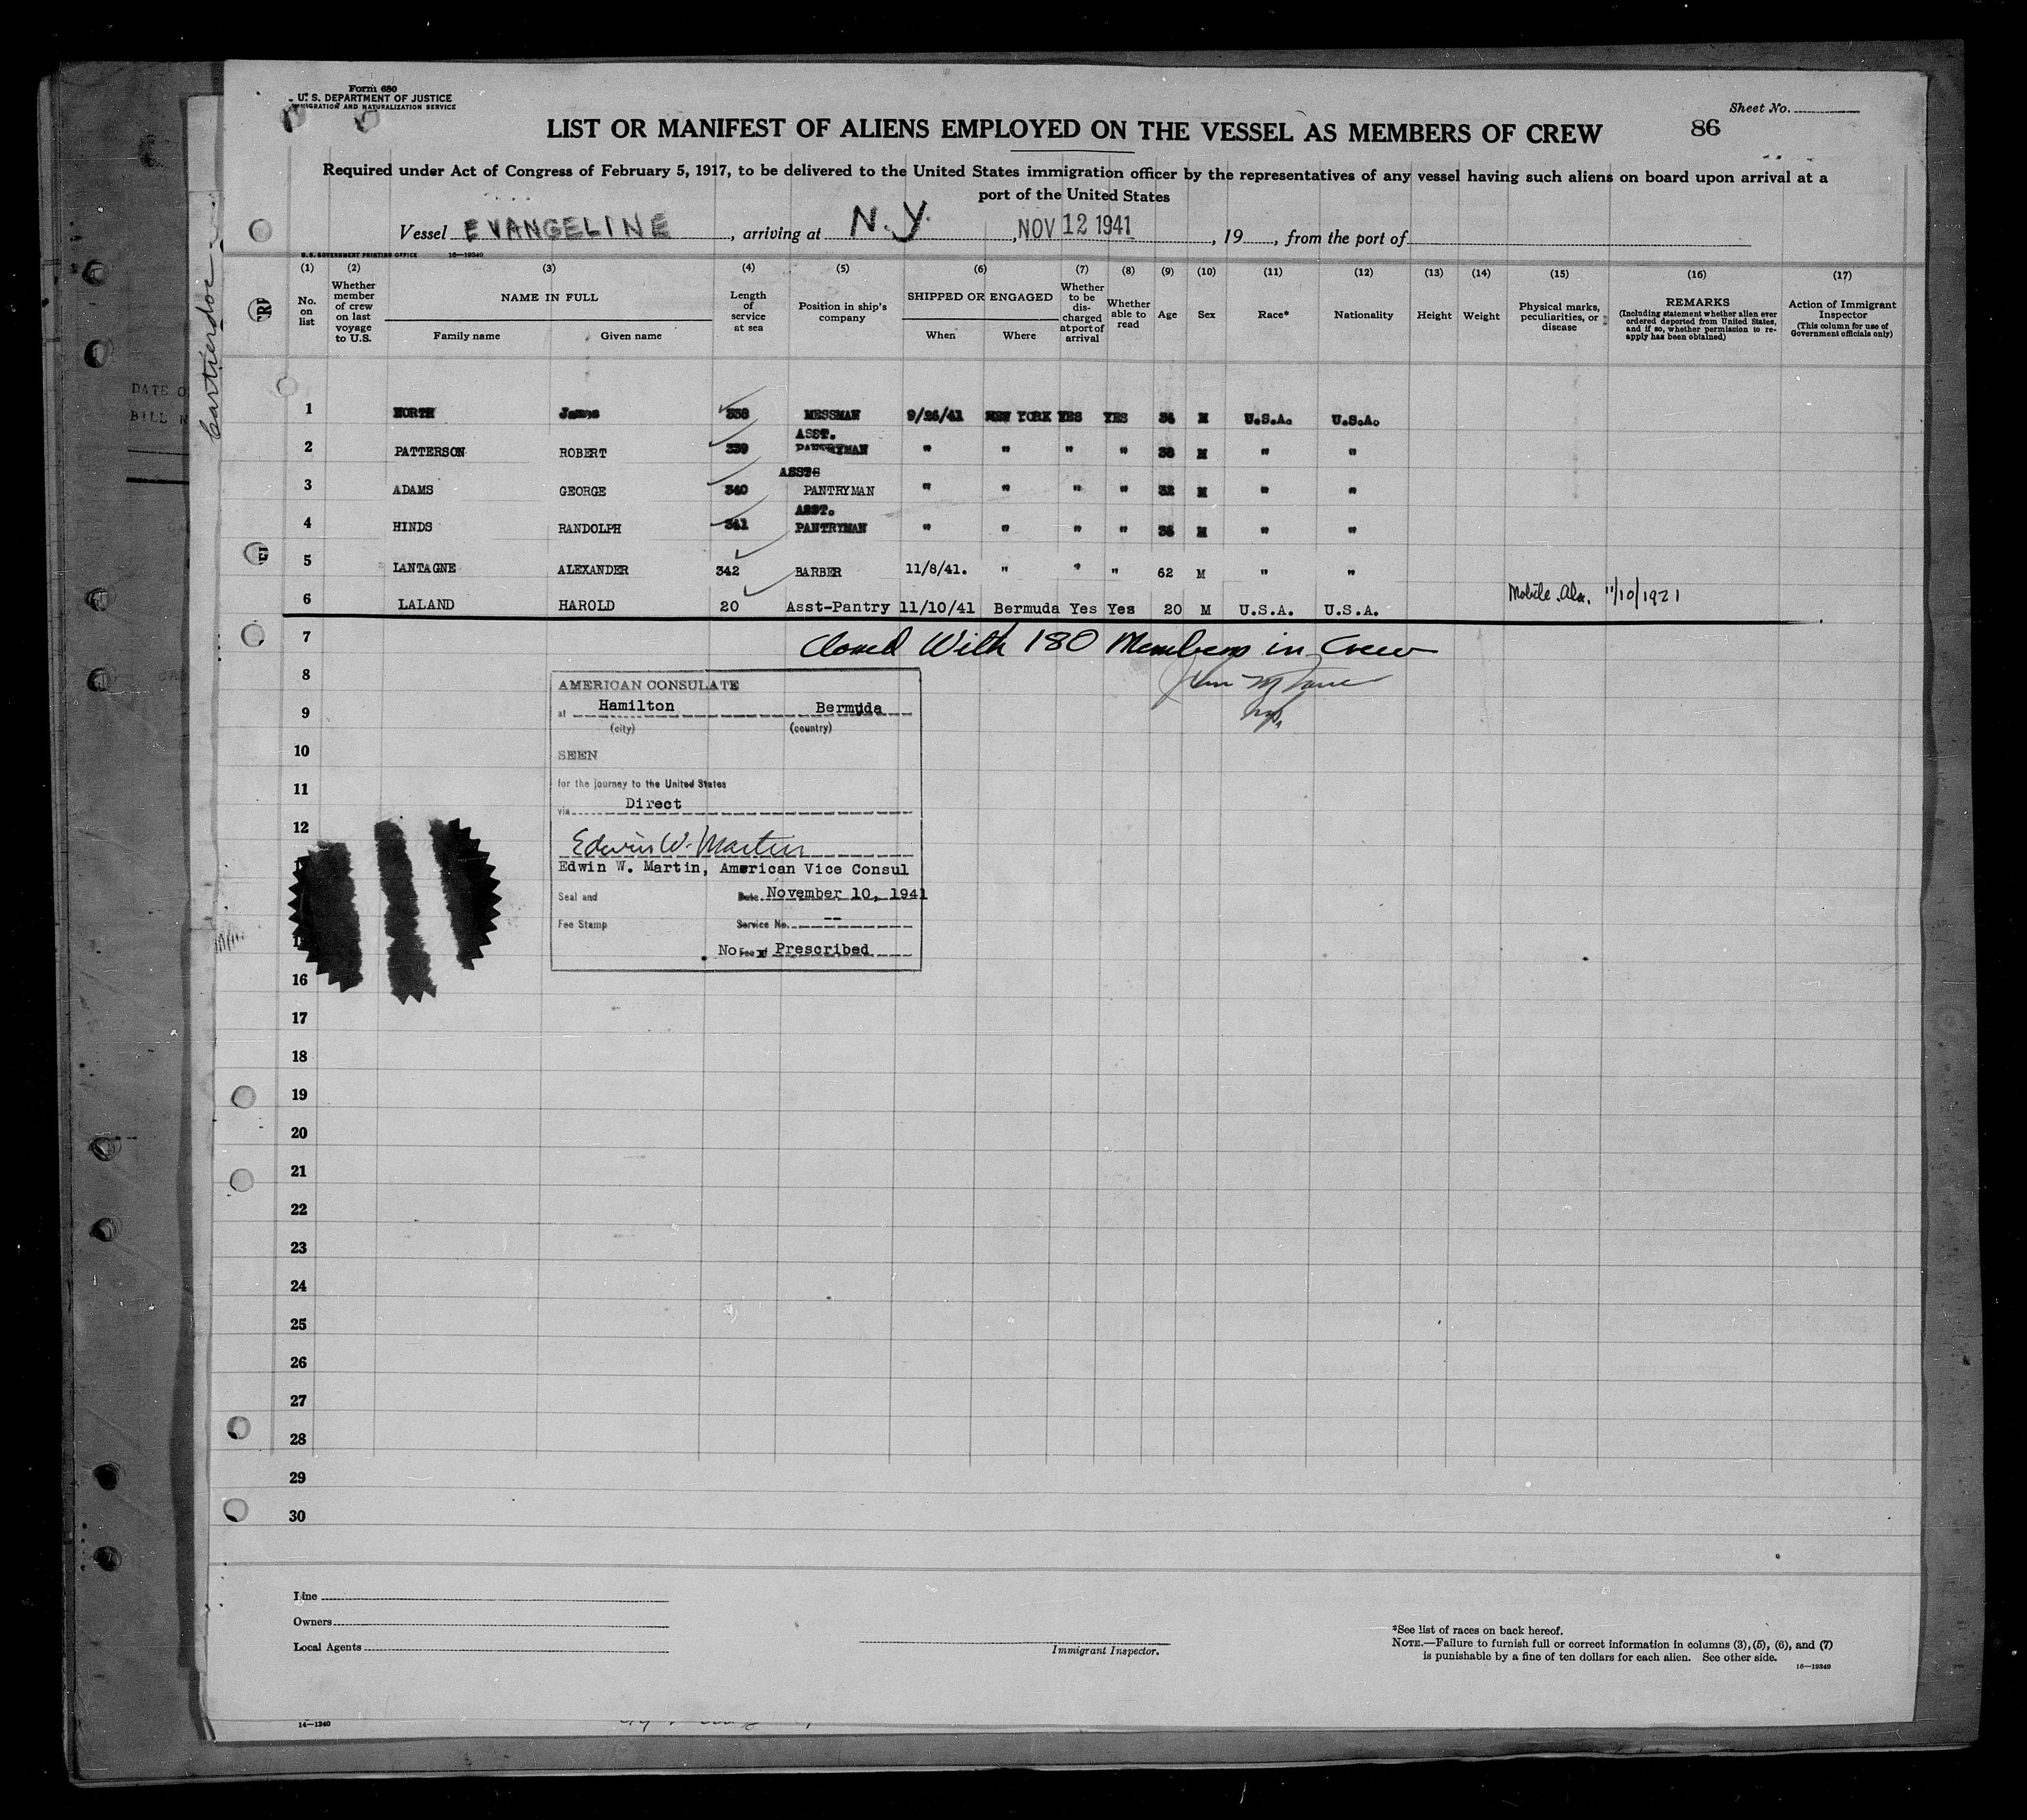 Form 680
U. S. DEPARTMENT OF JUSTICE
IMMIGRATION AND NATURALIZATION SERVICE
Sheet No.
86
LIST OR MANIFEST OF ALIENS EMPLOYED ON THE VESSEL AS MEMBERS OF CREW
Required under Act of Congress of February 5, 1917, to be delivered to the United States immigration officer by the representatives of any vessel having such aliens on board upon arrival at a
port of the United States
Vessel EVANGELINE, arriving at N.Y., NOV 12 1941, 19, from the port of
U.S. GOVERNMENT PRINTING OFFICE 16—19349
(1) (2) (3) (4) (5) (6) (7) (8) (9) (10) (11) (12) (13) (14) (15) (16) (17)
No. on list
Whether member of crew on last voyage to U.S.
NAME IN FULL
Family name Given name
Length of service at sea
Position in ship's company
SHIPPED OR ENGAGED
When Where
Whether to be discharged at port of arrival
Whether able to read
Age
Sex
Race*
Nationality
Height
Weight
Physical marks, peculiarities, or disease
REMARKS
(Including statement whether alien ever ordered deported from United States, and if so, whether permission to re-apply has been obtained)
Action of Immigrant Inspector
(This column for use of Government officials only)
1 NORTH James 338 MESSMAN 9/26/41 NEW YORK YES YES 34 M U.S.A. U.S.A.
ASST.
2 PATTERSON ROBERT 339 PANTRYMAN " " " " 38 M " "
ASSTS
3 ADAMS GEORGE 340 PANTRYMAN " " " " 32 M " "
ASST.
4 HINDS RANDOLPH 341 PANTRYMAN " " " " 36 M " "
5 LANTAGNE ALEXANDER 342 BARBER 11/8/41. " " " 62 M " "
6 LALAND HAROLD 20 Asst-Pantry 11/10/41 Bermuda Yes Yes 20 M U.S.A. U.S.A. Mobile. Ala. 11/10/1921
7 Closed With 180 Members in Crew
8
9
10
11
12
16
17
18
19
20
21
22
23
24
25
26
27
28
29
30
AMERICAN CONSULATE
at Hamilton Bermuda
(city) (country)
SEEN
for the journey to the United States
via Direct
Edwin W. Martin
Edwin W. Martin, American Vice Consul
Seal and Date November 10, 1941
Fee Stamp Service No. --
No Fee Prescribed
Cartierdoc
DATE O
BILL
Line
Owners
Local Agents
Immigrant Inspector.
*See list of races on back hereof.
NOTE.—Failure to furnish full or correct information in columns (3), (5), (6), and (7)
is punishable by a fine of ten dollars for each alien. See other side.
16—19349
14—1240